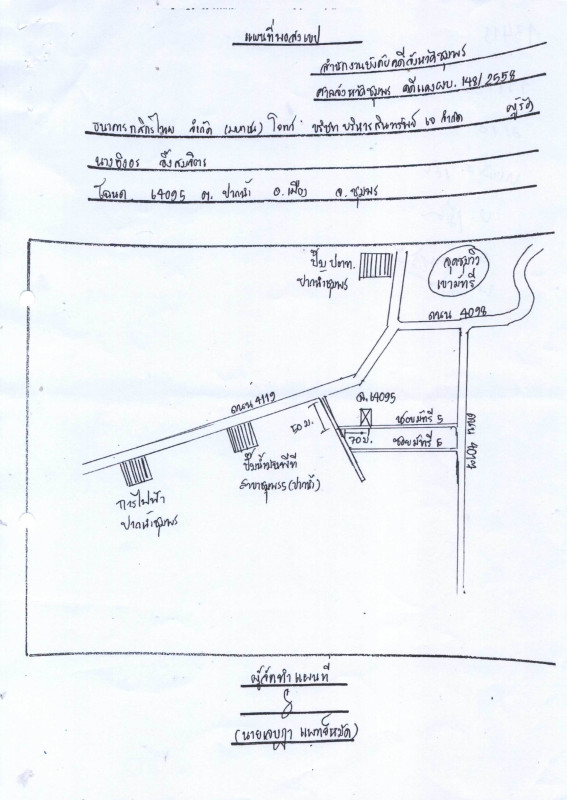 แผนที่พอสังเขป
สำนักงานบังคับคดีจังหวัดชุมพร
ศาลจังหวัดชุมพร คดีแดงผบ. 148/2558
ธนาคารกสิกรไทย จำกัด (มหาชน) โจทก์ บริษัท บริหารสินทรัพย์ เจ จำกัด ผู้ร้อง
นาง
โฉนด 64095 ต. ปากน้ำ อ. เมือง จ. ชุมพร
ปั๊ม ปตท.
ปากน้ำชุมพร
จุดชมวิว
เขามัทรี
ถนน 4098
ถนน 4119
ฉ. 64095
ซอยมัทรี 5
50 ม.
70 ม.
ซอยมัทรี 6
ถนน
ปั๊มน้ำมันพีที
สาขาชุมพร5 (ปากน้ำ)
การไฟฟ้า
ปากน้ำชุมพร
ผู้จัดทำแผนที่